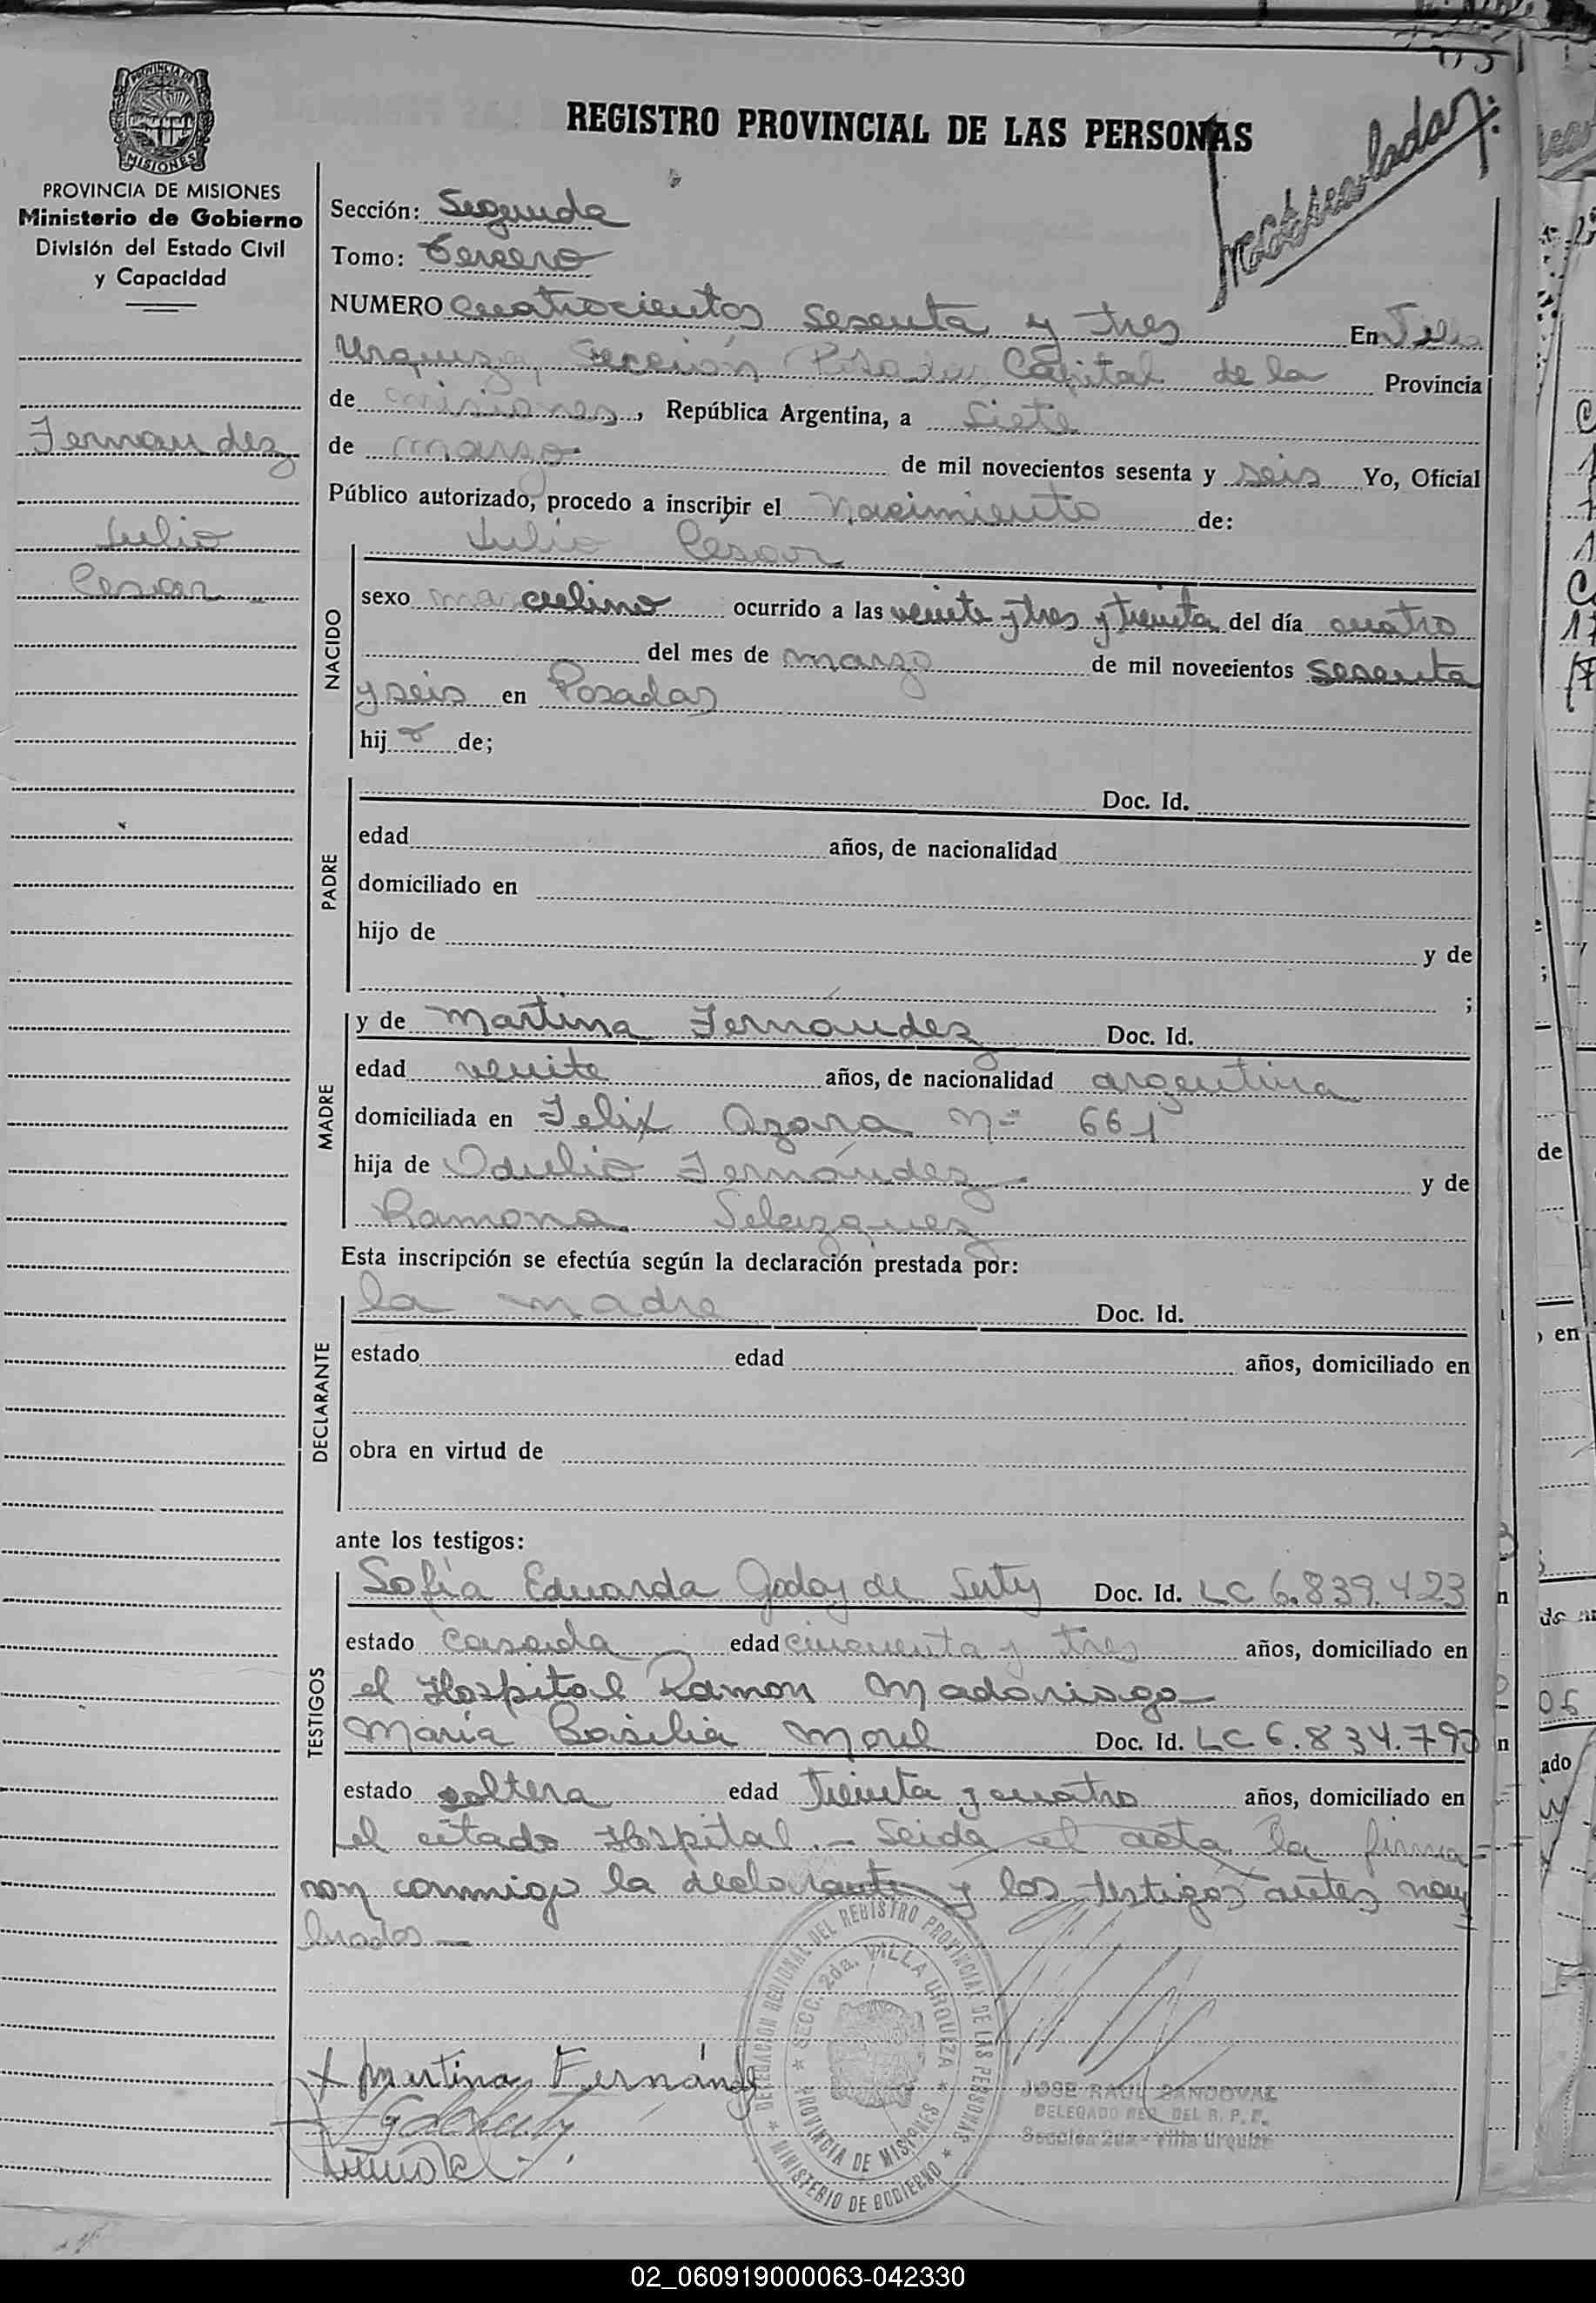 REGISTRO PROVINCIAL DE LAS PERSONAS
PROVINCIA DE MISIONES
PROVINCIA DE MISIONES
Ministerio de Gobierno
División del Estado Civil
y Capacidad
Fernandez
Julio
Cesar
Sección: Segunda
Tomo: Tercero
NUMERO cuatrocientos sesenta y tres En Villa
Urquiza, Sección Posadas Capital de la Provincia
de misiones, República Argentina, a siete
de marzo de mil novecientos sesenta y seis Yo, Oficial
Público autorizado, procedo a inscribir el nacimiento de:
NACIDO
Julio Cesar
sexo masculino ocurrido a las veinte y tres y treinta del día cuatro
del mes de marzo de mil novecientos sesenta
y seis en Posadas
hij o de;
PADRE
Doc. Id.
edad años, de nacionalidad
domiciliado en
hijo de y de
;
MADRE
y de Martina Fernandez Doc. Id.
edad veinte años, de nacionalidad argentina
domiciliada en Felix Azara Nº 661
hija de Odulio Fernández y de
Ramona Velazquez
Esta inscripción se efectúa según la declaración prestada por:
DECLARANTE
la madre Doc. Id.
estado edad años, domiciliado en
obra en virtud de
ante los testigos:
TESTIGOS
Sofía Eduarda Godoy de Doc. Id. LC 6.839.423
estado casada edad cincuenta y tres años, domiciliado en
el Hospital Ramon Madariaga
María Basilia Morel Doc. Id. LC 6.834.793
estado soltera edad treinta y cuatro años, domiciliado en
el citado Hospital.- Leida el acta la firma=
ron conmigo la declarante y los testigos antes nom
brados —
DELEGACION REGIONAL DEL REGISTRO PROVINCIAL DE LAS PERSONAS
MINISTERIO DE GOBIERNO
SECC. 2da. VILLA URQUIZA
PROVINCIA DE MISIONES
x Martina Fernánd
JOSE RAUL SANDOVAL
DELEGADO REG. DEL R. P. P.
Sección 2da - Villa Urquiza
02_060919000063-042330